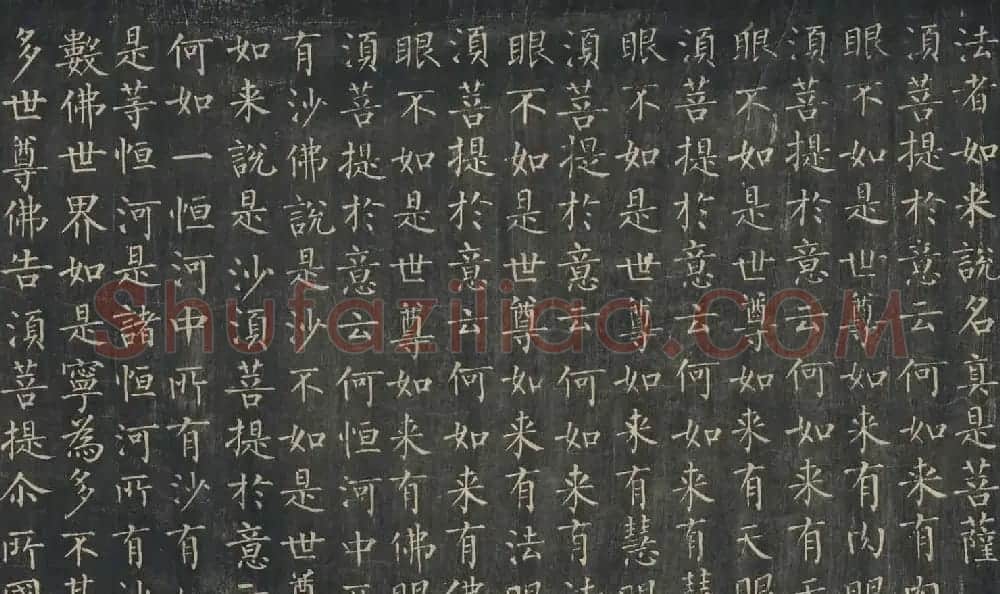 法者如来說名真是菩薩
湏菩提於意云何如来有肉
眼不如是世尊如来有肉眼
湏菩提於意云何如来有天
眼不如是世尊如来有天眼
湏菩提於意云何如来有慧
眼不如是世尊如来有慧眼
湏菩提於意云何如来有法
眼不如是世尊如来有法眼
湏菩提於意云何如来有佛
眼不如是世尊如来有佛眼
湏菩提於意云何恒河中
有沙佛說是沙不如是世尊
如来說是沙湏菩提於意
何如一恒河中所有沙有
是等恒河是諸恒河所有沙
數佛世界如是寧為多不甚
多世尊佛告湏菩提尒所國
Shufaziliao.COM